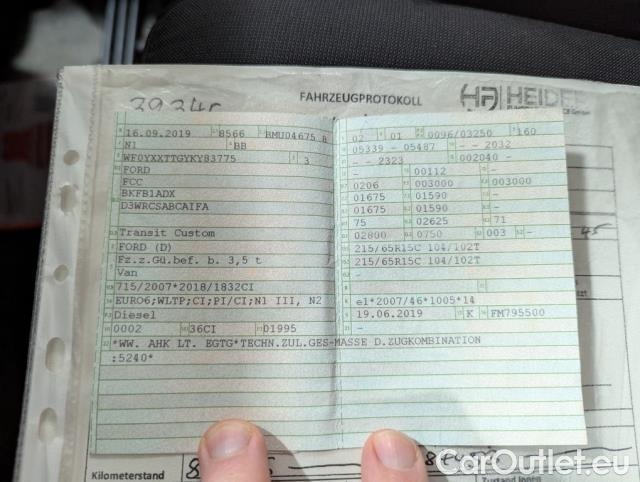 FAHRZEUGPROTOKOLL HEIDE
16.09.2019 8566 BMU04675 8
N1 BB
WF0YXXTTGYKY83775 3
FORD
FCC
BKFB1ADX
D3WRCSABCAIFA
Transit Custom
FORD (D)
Fz.z.Gü.bef. b. 3,5 t
Van
715/2007*2018/1832CI
EURO6;WLTP;CI;PI/CI;N1 III, N2
Diesel
0002 36CI 01995
*WW. AHK LT. EGTG*TECHN.ZUL.GES-MASSE D.ZUGKOMBINATION
:5240*
02 01 0096/03250 160
05339 - 05487 - - 2032
- - 2323 002040 -
- 00112 -
0206 003000 003000
01675 01590 -
01675 01590 -
75 02625 71
02800 0750 003 -
215/65R15C 104/102T
215/65R15C 104/102T
-
-
e1*2007/46*1005*14
19.06.2019 K FM795500
-
Kilometerstand
Zustand innen
CarOutlet.eu